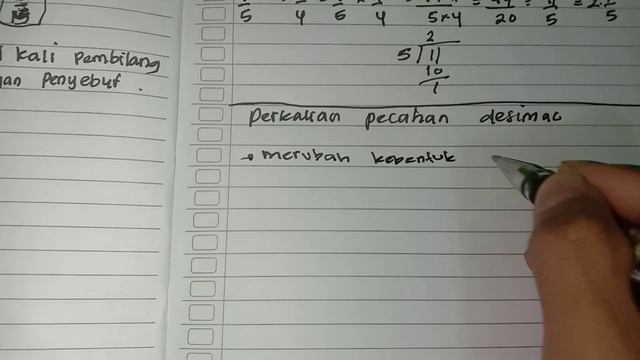 kali Pembilang
Penyebut.
5 4 5 4 5×4 20 5 5
2
5 11
10
1
perkalian pecahan desimal
→ merubah kebentuk